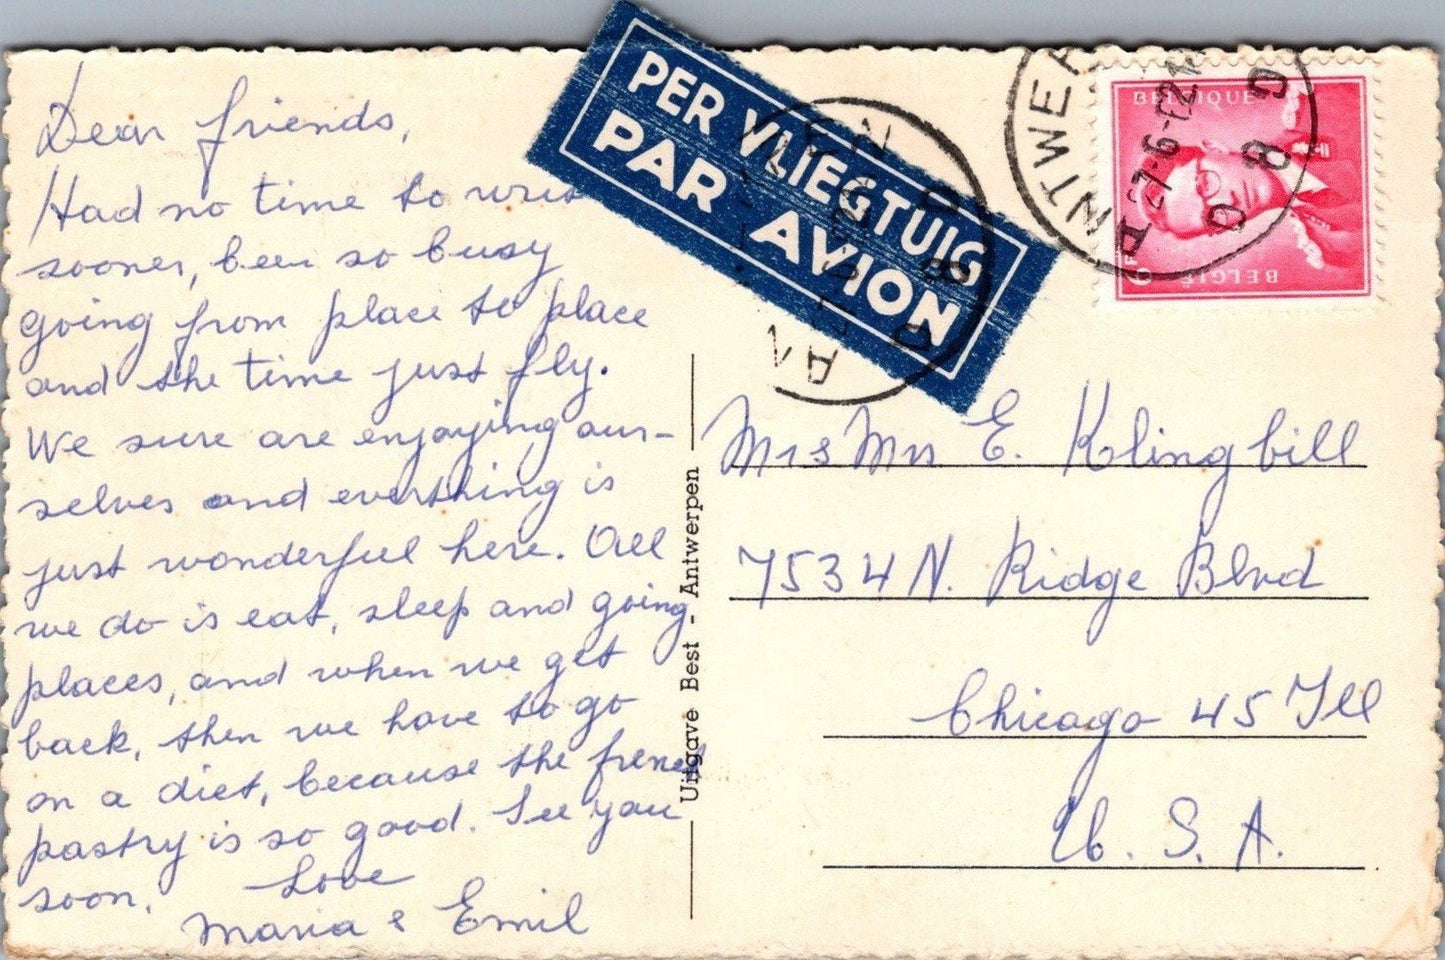 Dear friends,
Had no time to write
sooner, been so busy
going from place to place
and the time just fly.
We sure are enjoying our-
selves and everthing is
just wonderful here. All
we do is eat, sleep and going
places, and when we get
back, then we have to go
on a diet, because the french
pastry is so good. See you
soon.
Love
Maria & Emil
Uitgave Best - Antwerpen
PER VLIEGTUIG
PAR AVION
BELGIQUE
BELGIË
6 F
ANTWE
Mrs Mrs E. Klingbill
7534 N. Ridge Blvd
Chicago 45 Ill
U. S. A.